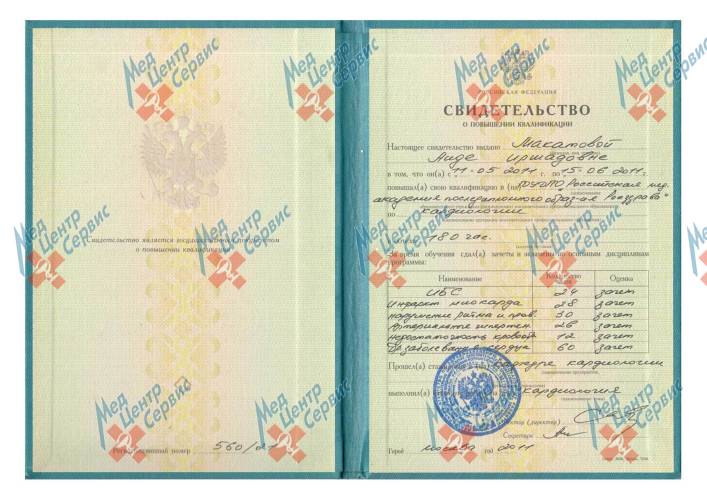 Свидетельство является государственным документом
о повышении квалификации
Регистрационный номер 560/21
РОССИЙСКАЯ ФЕДЕРАЦИЯ
СВИДЕТЕЛЬСТВО
О ПОВЫШЕНИИ КВАЛИФИКАЦИИ
Настоящее свидетельство выдано Макатовой
Аиде Иршадовне
в том, что он(а) с 11-05 2011 г. по 15-06 2011 г.
повышал(а) свою квалификацию в (на) Российская мед.
академия
по кардиологии
180 час.
За время обучения сдал(а) зачеты и экзамены по основным дисциплинам
программы:
Наименование Количество Оценка
ИБС 24 зачет
Инфаркт миокарда 28 зачет
нарушение ритма и пров. 30 зачет
Артериальная гипертен. 26 зачет
недостаточность 12 зачет
заболевания сердца 60 зачет
Прошел(а) кафедре кардиологии
выполнил(а) кардиология
Ректор (директор)
Секретарь
Город Москва год 2011
Мед Центр Сервис